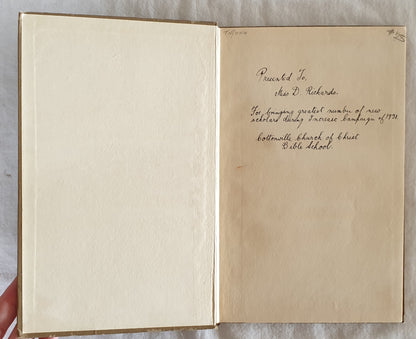 Presented To,
Miss D. Rickards.
For bringing greatest number of new
scholars during Increase Campaign of 1931
Cottonville Church of Christ
Bible School.